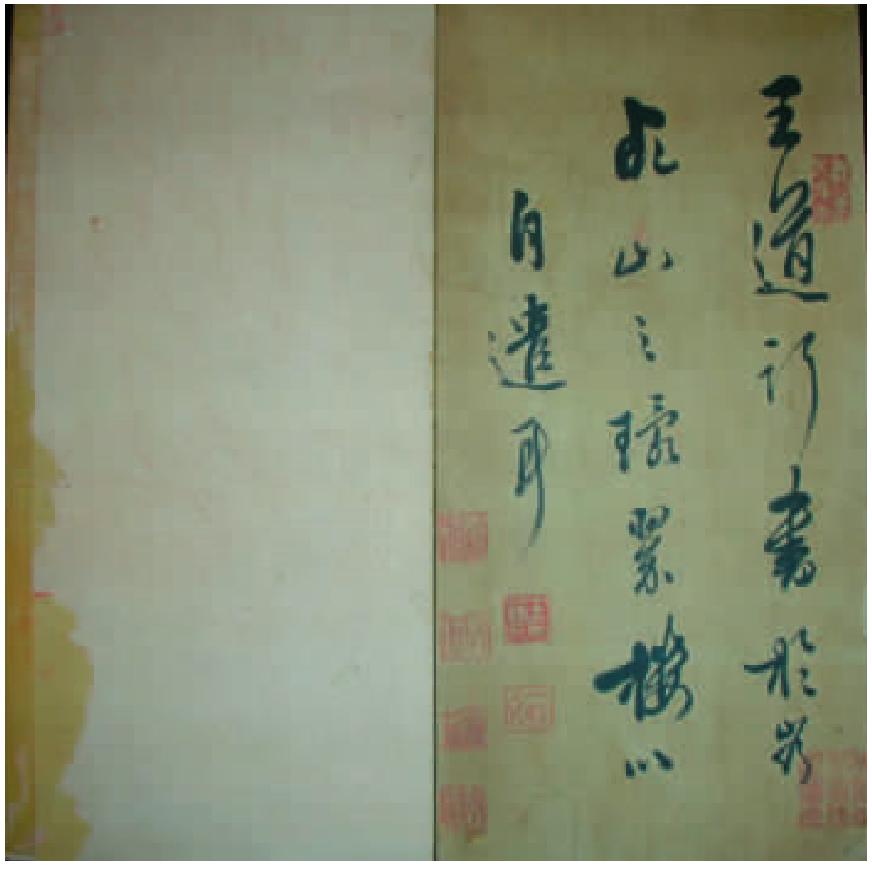 王道行書於
山之環翠樓以
自遣耳